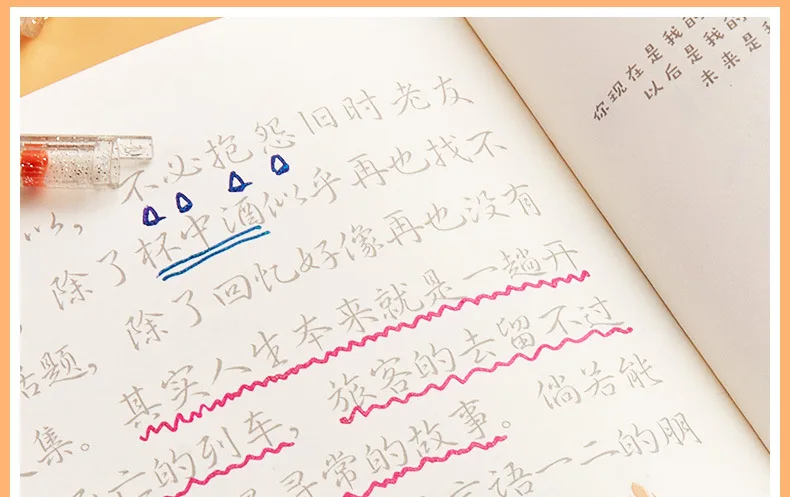 以，不必抱怨旧时老友
，除了杯中酒似乎再也找不
话题，除了回忆好像再也没有
集。其实人生本来就是一趟开
亡的列车，旅客的去留不过
寻常的故事。倘若能
言语一二的朋
你现在是我的
以后是我的
未来是